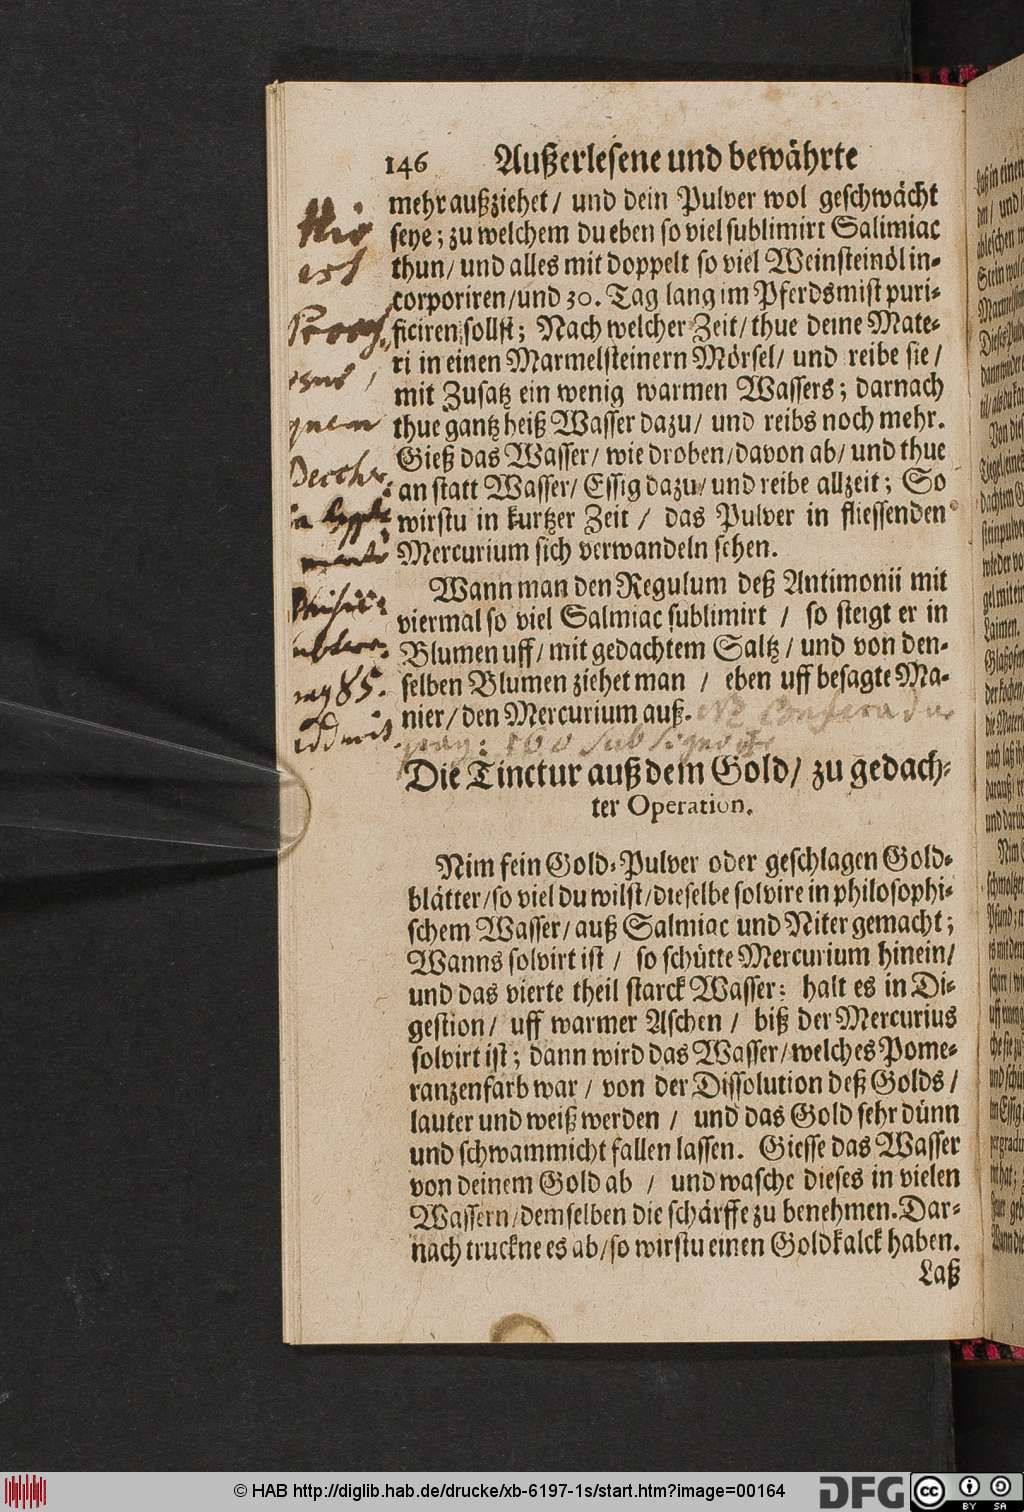 146 Außerlesene und bewährte
mehr außziehet / und dein Pulver wol geschwächt
seye; zu welchem du eben so viel sublimirt Salimiac
thun / und alles mit doppelt so viel Weinsteinöl in-
corporiren / und 30. Tag lang im Pferdsmist puri-
ficiren sollst; Nach welcher Zeit / thue deine Mate-
ri in einen Marmelsteinern Mörsel / und reibe sie /
mit Zusatz ein wenig warmen Wassers; darnach
thue gantz heiß Wasser dazu / und reibs noch mehr.
Gieß das Wasser / wie droben / davon ab / und thue
an statt Wasser / Essig dazu / und reibe allzeit; So
wirstu in kurtzer Zeit / das Pulver in fliessenden
Mercurium sich verwandeln sehen.
Wann man den Regulum deß Antimonii mit
viermal so viel Salmiac sublimirt / so steigt er in
Blumen uff / mit gedachtem Saltz / und von den-
selben Blumen ziehet man / eben uff besagte Ma-
nier / den Mercurium auß.
Die Tinctur auß dem Gold / zu gedach-
ter Operation.
Nim fein Gold-Pulver oder geschlagen Gold-
blätter / so viel du wilst / dieselbe solvire in philosophi-
schem Wasser / auß Salmiac und Niter gemacht;
Wanns solvirt ist / so schütte Mercurium hinein /
und das vierte theil starck Wasser: halt es in Di-
gestion / uff warmer Aschen / biß der Mercurius
solvirt ist; dann wird das Wasser / welches Pome-
ranzenfarb war / von der Dissolution deß Golds /
lauter und weiß werden / und das Gold sehr dünn
und schwammicht fallen lassen. Giesse das Wasser
von deinem Gold ab / und wasche dieses in vielen
Wassern / demselben die schärffe zu benehmen. Dar-
nach truckne es ab / so wirstu einen Goldkalck haben.
Laß
© HAB http://diglib.hab.de/drucke/xb-6197-1s/start.htm?image=00164
DFG
cc BY SA